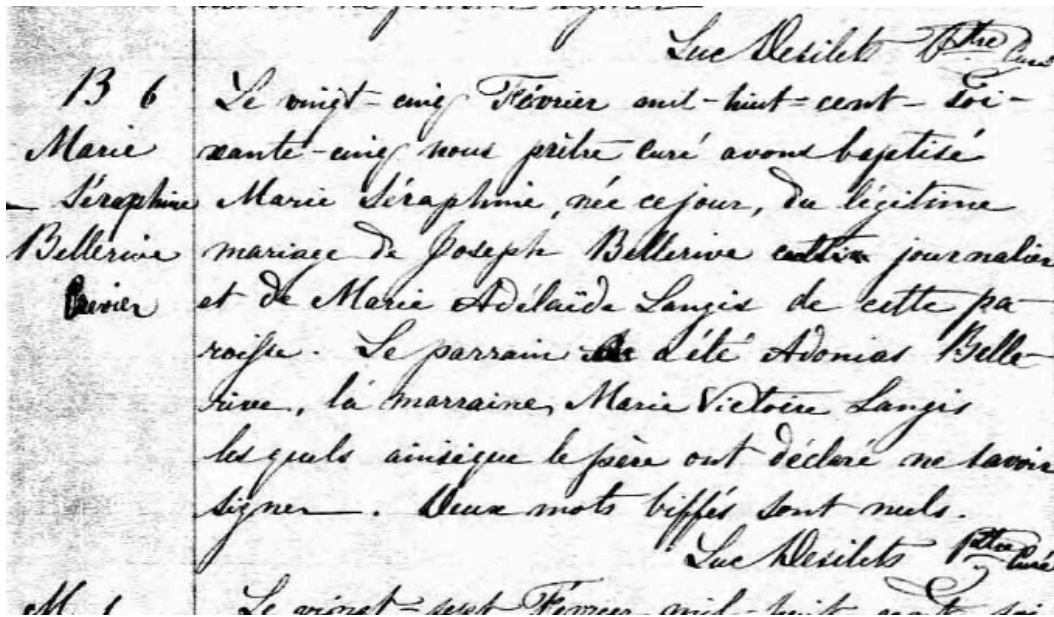 signer
Luc Desilets Ptre Curé
B 6
Marie
Séraphine
Bellerive
Le vingt-cinq Février mil-huit-cent-soi-
xante-cinq nous prêtre curé avons baptisé
Marie Séraphine, née ce jour, du légitime
mariage de Joseph Bellerive journalier
et de Marie Adélaïde Langis de cette pa-
roisse. Le parrain a été Adonias Belle-
rive, la marraine, Marie Victoire Langis
lesquels ainsique le père ont déclaré ne savoir
signer. Deux mots biffés sont nuls.
Luc Desilets Ptre Curé
M
Le vingt-sept Février mil-huit cent soi